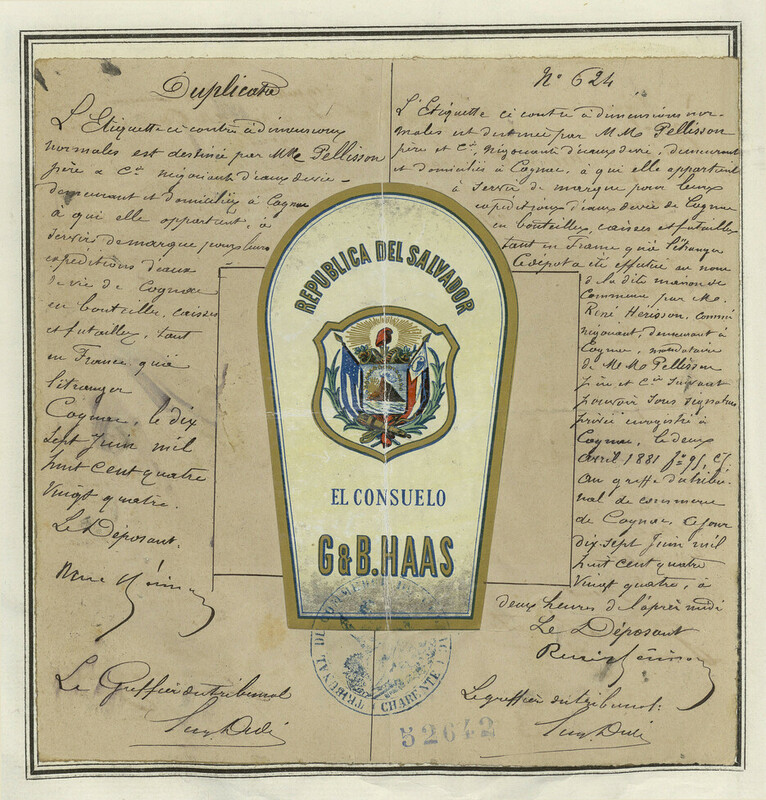 Duplicata
L'Etiquette ci contre à dimensions
normales est destinée par MM. Pellisson
père & Cie négociants d'eaux de vie
demeurant et domiciliés à Cognac
à qui elle appartient, à
servir de marque pour leurs
expéditions d'eaux
de vie de Cognac
en bouteilles, caisses
et futailles, tant
en France qu'à
l'étranger
Cognac, le dix
sept Juin mil
huit cent quatre
vingt quatre.
Le Déposant.
René Hérisson
Le Greffier du tribunal
N° 624
L'Etiquette ci contre à dimensions nor-
males est destinée par MM. Pellisson
père et Cie, négociants d'eaux de vie, demeurant
et domiciliés à Cognac, à qui elle appartient
à servir de marque pour leurs
expéditions d'eaux de vie de Cognac
en bouteilles, caisses et futailles
tant en France qu'à l'étranger
Le dépôt a été effectué au nom
de la dite maison de
Commerce par M.
René Hérisson, commis
négociant, demeurant à
Cognac, mandataire
de MM. Pellisson
père et Cie suivant
pouvoir sous signature
privée enregistré à
Cognac, le deux
avril 1881 f° 95, c7.
Au greffe du tribu-
nal de commerce
de Cognac, ce jour
dix-sept Juin mil
huit cent quatre
vingt quatre, à
deux heures de l'après midi
Le Déposant
René Hérisson
Le greffier du tribunal:
REPUBLICA DEL SALVADOR
EL CONSUELO
G & B. HAAS
TRIBUNAL DE COMMERCE
CHARENTE
52642